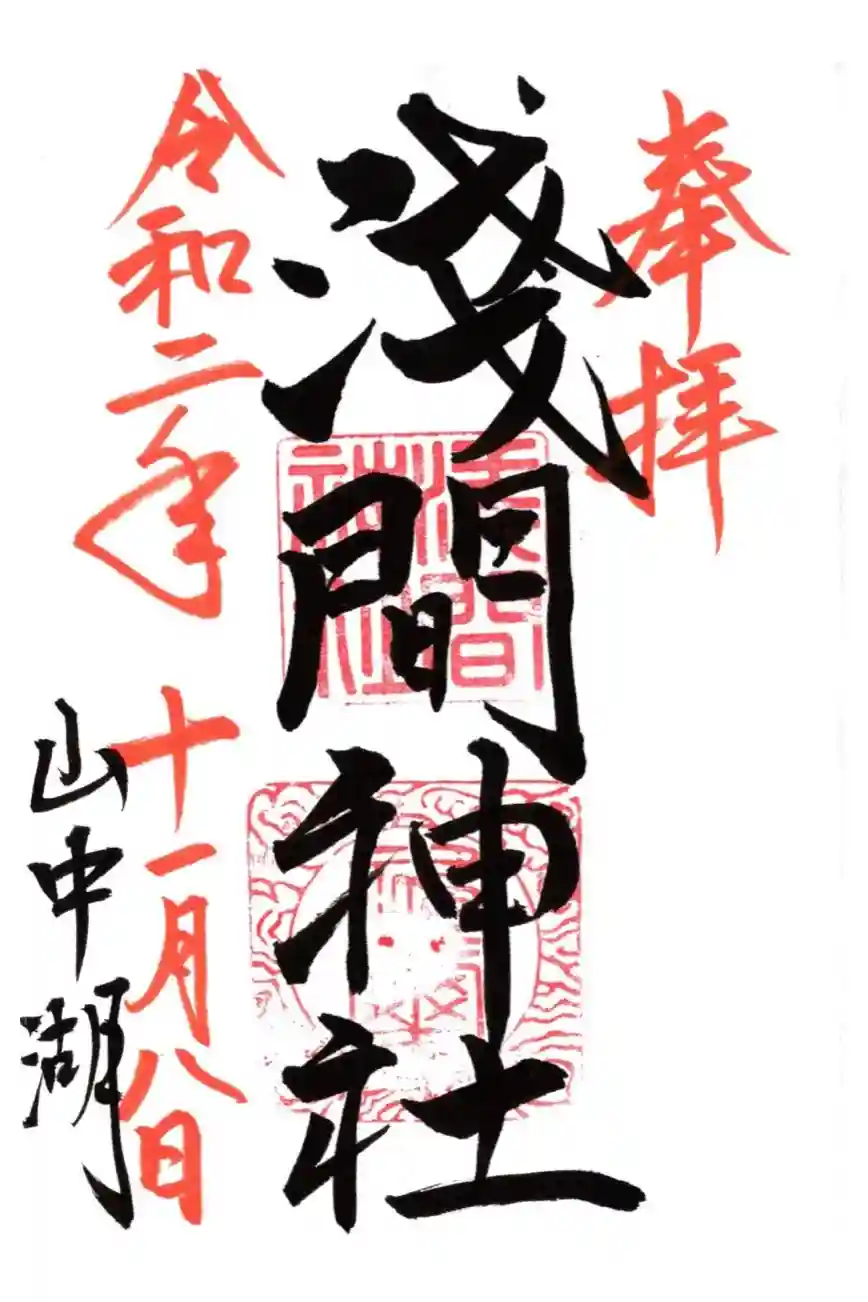 奉拝
淺間神社
淺間神社
令和二年十一月八日
山中湖